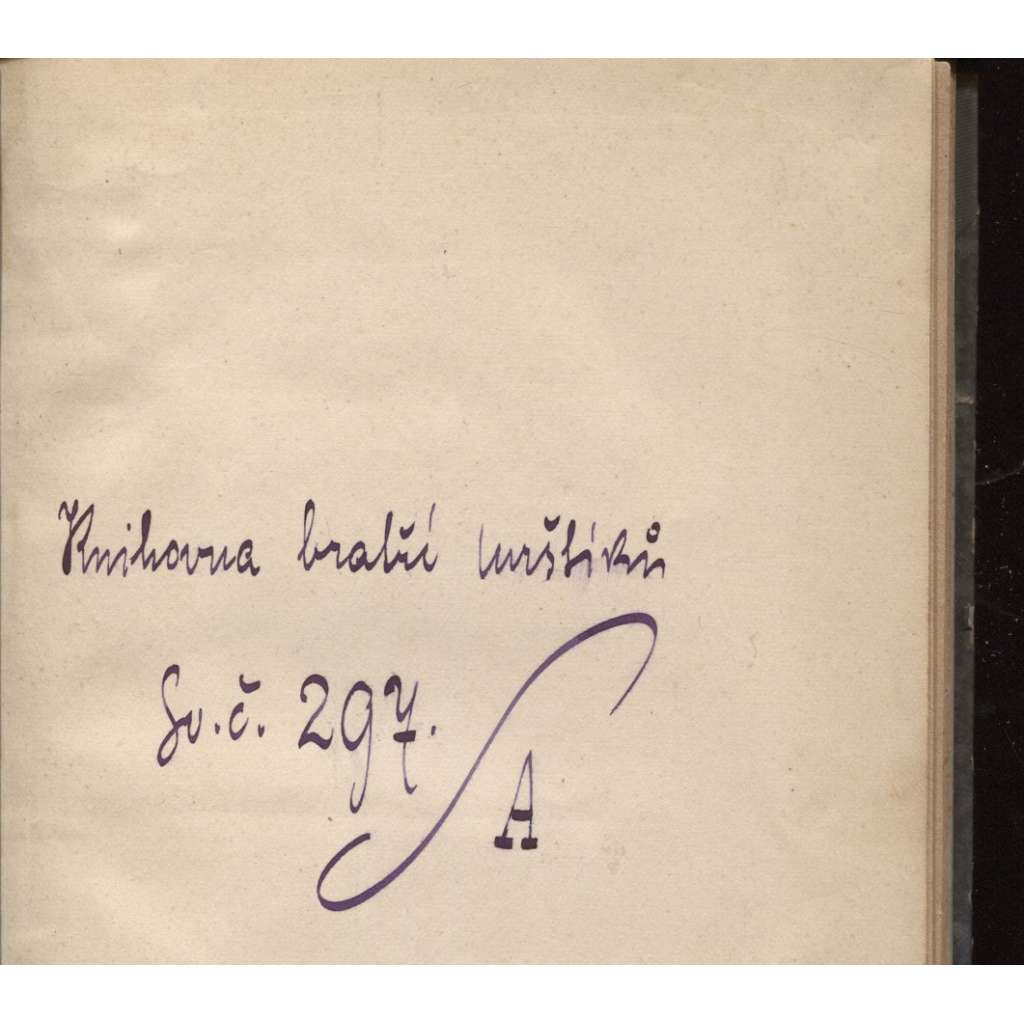 Knihovna bratří Mrštíků
Sv.č. 297.
A